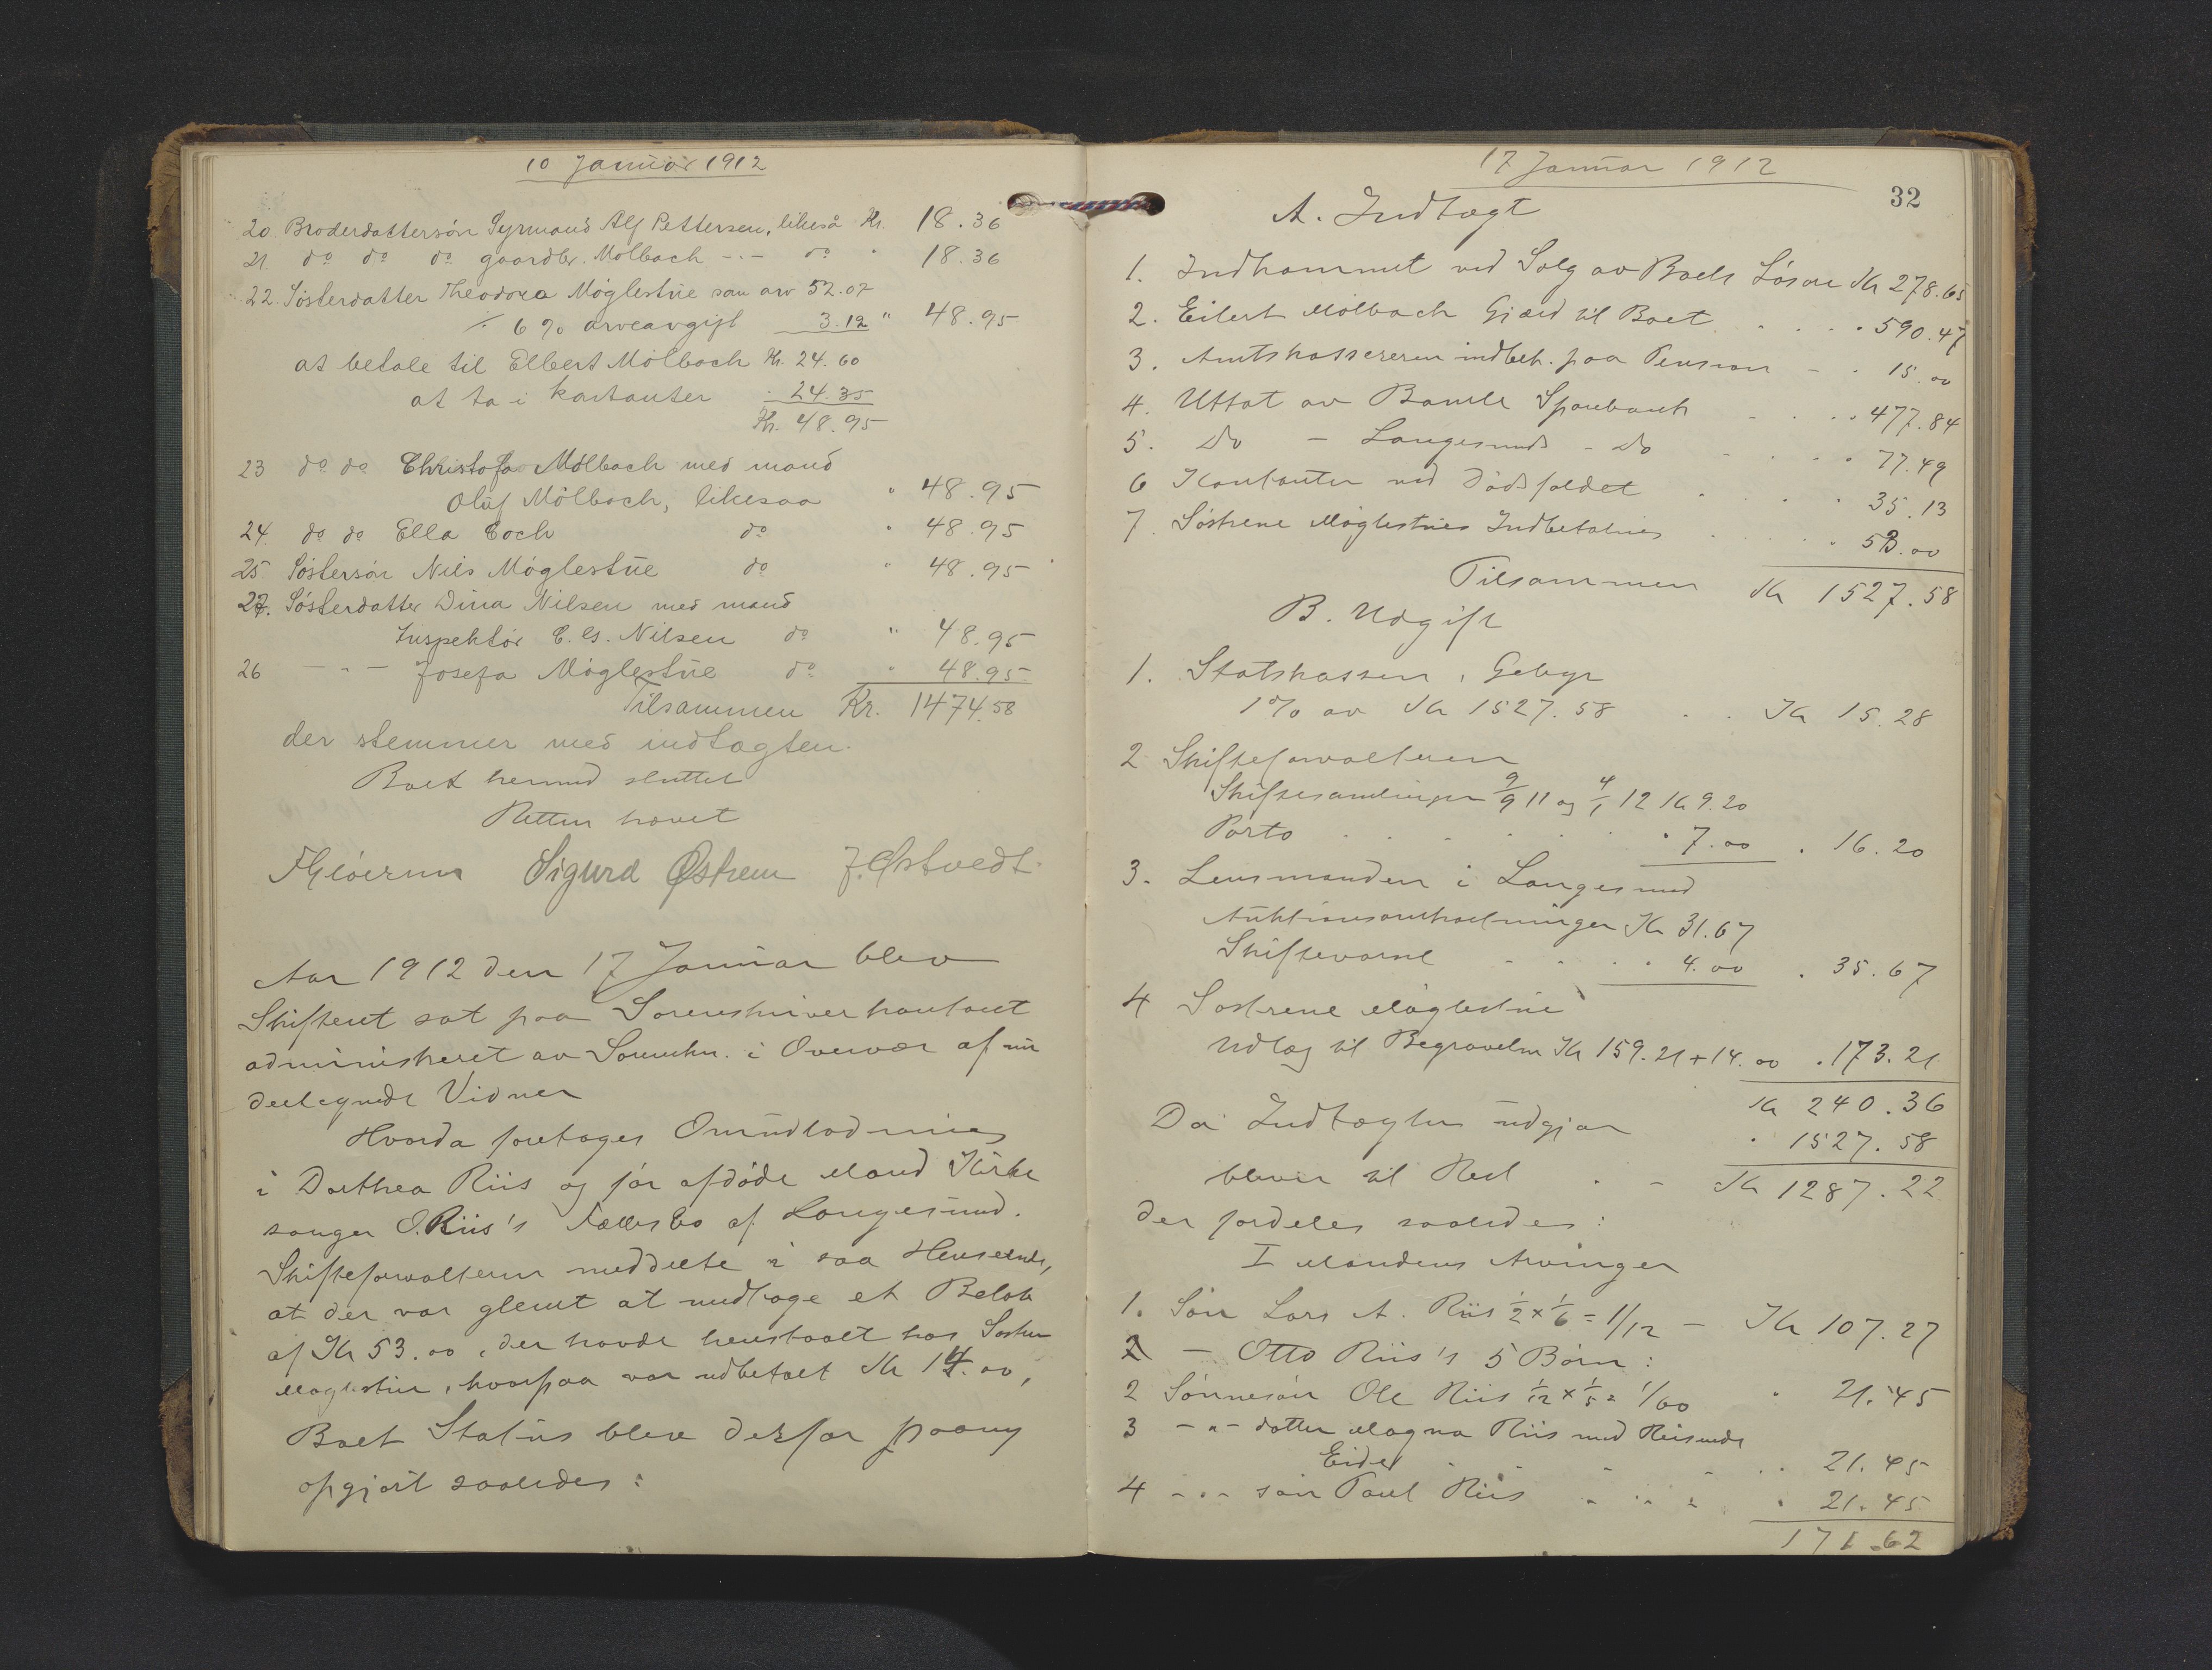 10 Januar 1912
20 Broderdattersön Syrmand Alf Pettersen, likeså Kr. 18.36
21. do do do gaardbr. Molbach -.- do " 18.36
22. Sösterdatter Theodora Möglestue sau arv 52.07
÷ 6 % arveavgift 3.12 " 48.95
at betale til Elbert Mölbach Kr. 24.60
at ta i kontanter - 24.35
Kr. 48.95
23 do do Christofa Mölbach med mand
Oluf Mölbach, likesaa " 48.95
24. do do Ella Coch do " 48.95
25 Söstersön Nils Möglestue do " 48.95
27. Sösterdatter Dina Nilsen med mand
Inspektör C. G. Nilsen do " 48.95
26 - " - Josefa Möglestue do " 48.95
Tilsammen Kr. 1474.58
der stemmer med indtægten.
Boet hermed sluttet
Retten hævet
Sigurd Østrem J. Østvedt
Aar 1912 den 17 Januar blev
Skifteret sat paa Sorenskriverkontoret
administreret av Sorenskr. i Overvær af un
dertegnede Vidner
Hvorda foretages Omudlodning
i Dorthea Riis og før afdöde Mand Kirke
sanger O. Riis's Fællesbo af Langesund.
Skifteforvalteren meddelte i saa Henseende,
at der var glemt at medtage et Belöb
af Kr 53.00, der havde henstaaet hos Söstr
Möglestue, hvorpaa var udbetalt Kr 14.00,
Boet Status blev derfor paany
opgjort saaledes:
17 Januar 1912
32
A. Indtægt
1. Indkommet ved Salg av Boets Lösöre Kr 278.65
2. Eilert Mölbach Gjæld til Boet . . . . 590.47
3. Amtskassereren indbet. paa Pension - . 15.00
4. Uttat av Bamle Sparebank - . . . 477.84
5. Do - Langesunds - Do - . . . 77.49
6 Kontanter ved Dödsfaldet . . . . 35.13
7. Söstrene Möglestues Indbetaling . . . . 53.00
Tilsammen Kr 1527.58
B. Udgift
1. Statskassen, Gebyr
1% av Kr 1527.58 . . Kr 15.28
2 Skifteforvalteren
Skiftesamlinger 9/9 11 og 4/1 12 Kr 9.20
Porto . . . . . . 7.00 . 16.20
3. Lensmanden i Langesund
Auktionsomkostninger Kr 31.67
Skiftevarsel - . . . 4.00 . 35.67
4 Söstrene Möglestue
Udlæg til Begravelse Kr 159.21 + 14.00 . 173.21
Kr 240.36
Da Indtægten udgjør . 1527.58
bliver til Rest . - Kr 1287.22
der fordeles saaledes:
I Mandens Arvinger
1. Sön Lars A. Riis 1/2 x 1/6 = 1/12 - Kr 107.27
2 - Otto Riis's 5 Börn:
2 Sönnesön Ole Riis 1/12 x 1/5 = 1/60 " 21.45
3 - " - datter Magna Riis med
Eide . . . . 21.45
4 - " - sön Paul Riis . . . . 21.45
171.62